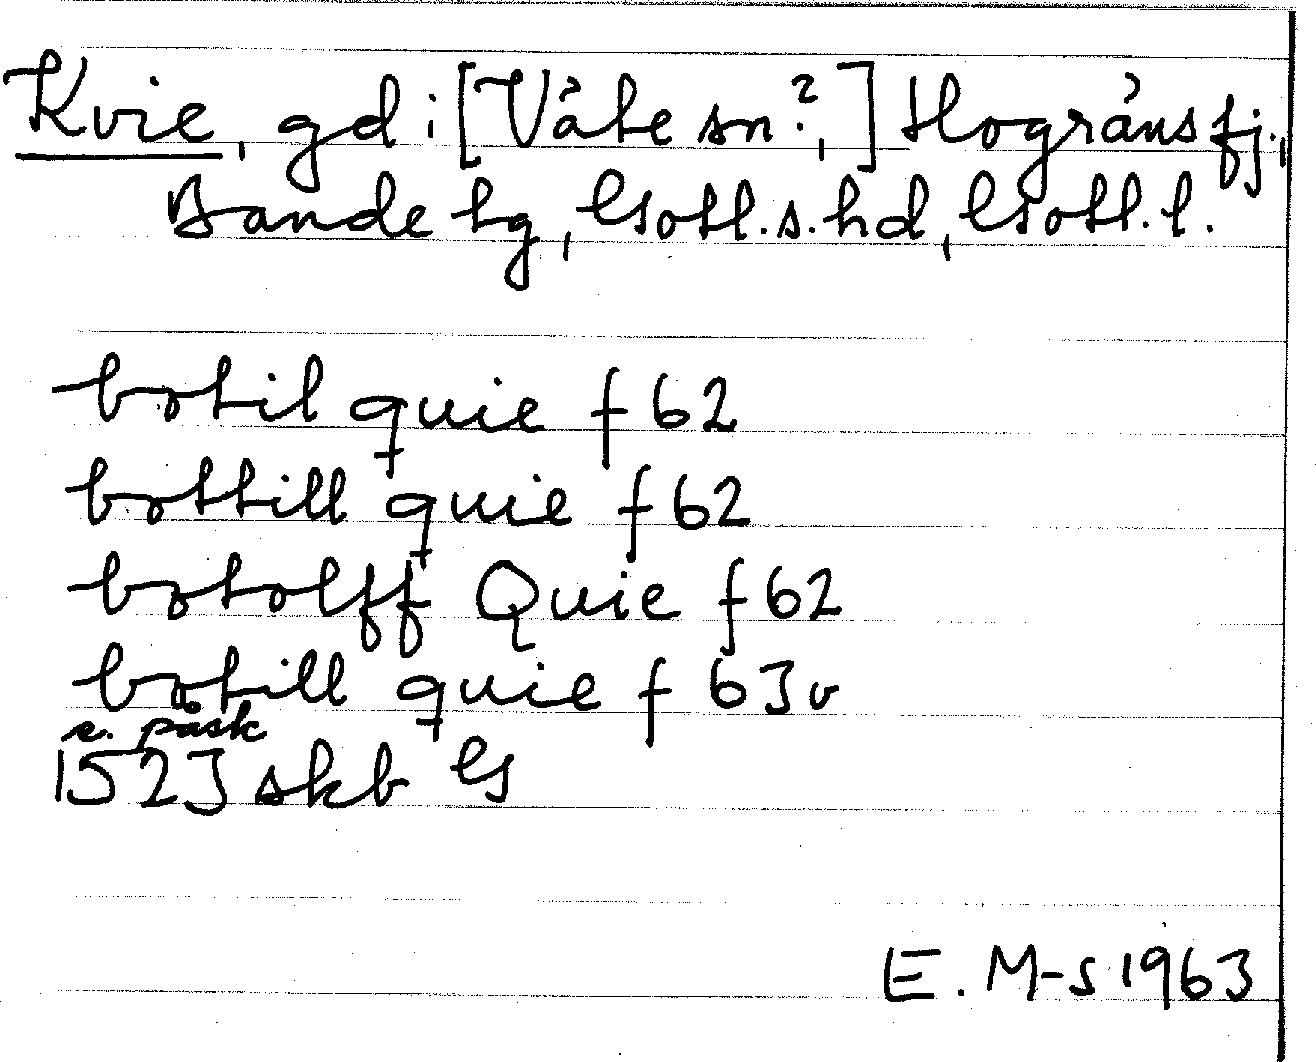 Kvie, gd i [Väte sn?,] Hogräns fj.,
Bande tg, Gotl. s. hd, Gotl. l.
botil quie f 62
bottill quie f 62
botolff Quie f 62
botill quie f 63v
e. påsk
1523 skb G
E. M-s 1963